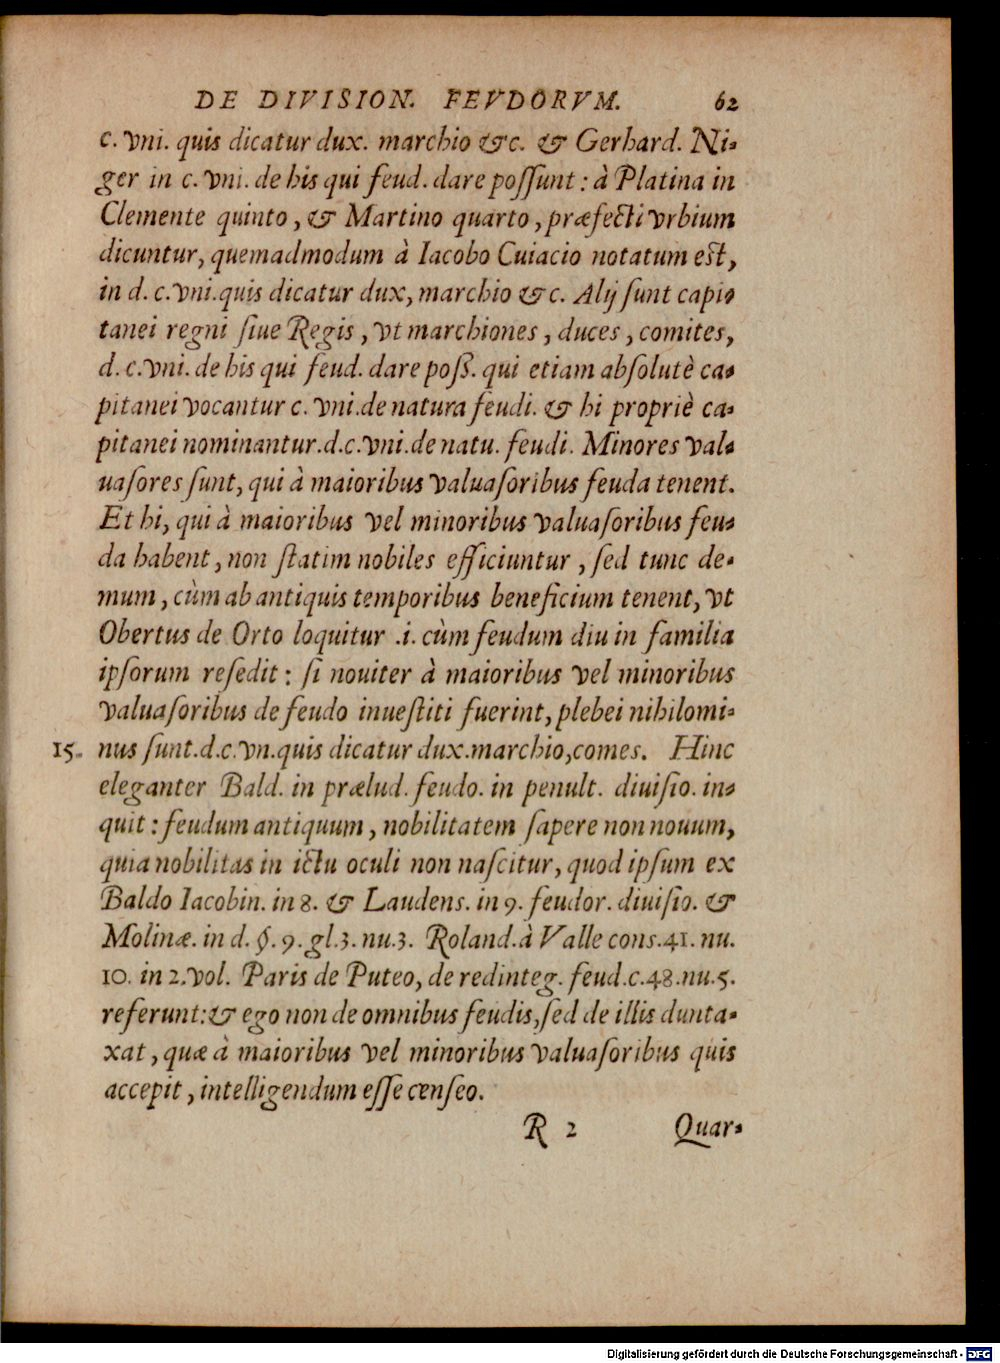 DE DIVISION. FEVDORVM. 62
c. vni. quis dicatur dux. marchio &c. & Gerhard. Ni-
ger in c. vni. de his qui feud. dare poſſunt : à Platina in
Clemente quinto, & Martino quarto, præfecti vrbium
dicuntur, quemadmodum à Iacobo Cuiacio notatum est,
in d. c. vni. quis dicatur dux, marchio &c. Alij ſunt capi-
tanei regni ſiue Regis, vt marchiones, duces, comites,
d. c. vni. de his qui feud. dare poß. qui etiam abſolutè ca-
pitanei vocantur c. vni. de natura feudi. & hi propriè ca-
pitanei nominantur. d. c. vni. de natu. feudi. Minores val-
uaſores ſunt, qui à maioribus valuaſoribus feuda tenent.
Et hi, qui à maioribus vel minoribus valuaſoribus feu-
da habent, non ſtatim nobiles efficiuntur, ſed tunc de-
mum, cùm ab antiquis temporibus beneficium tenent, vt
Obertus de Orto loquitur .i. cùm feudum diu in familia
ipſorum reſedit : ſi nouiter à maioribus vel minoribus
valuaſoribus de feudo inueſtiti fuerint, plebei nihilomi-
15. nus ſunt. d. c. vn. quis dicatur dux. marchio, comes. Hinc
eleganter Bald. in prælud. feudo. in penult. diuiſio. in-
quit : feudum antiquum, nobilitatem ſapere non nouum,
quia nobilitas in ictu oculi non naſcitur, quod ipſum ex
Baldo Iacobin. in 8. & Laudens. in 9. feudor. diuiſio. &
Molinæ. in d. §. 9. gl. 3. nu. 3. Roland. à Valle cons. 41. nu.
10. in 2. vol. Paris de Puteo, de redinteg. feud. c. 48. nu. 5.
referunt : & ego non de omnibus feudis, ſed de illis dunta-
xat, quæ à maioribus vel minoribus valuaſoribus quis
accepit, intelligendum eſſe cenſeo.
R 2 Quar-
Digitalisierung gefördert durch die Deutsche Forschungsgemeinschaft - DFG